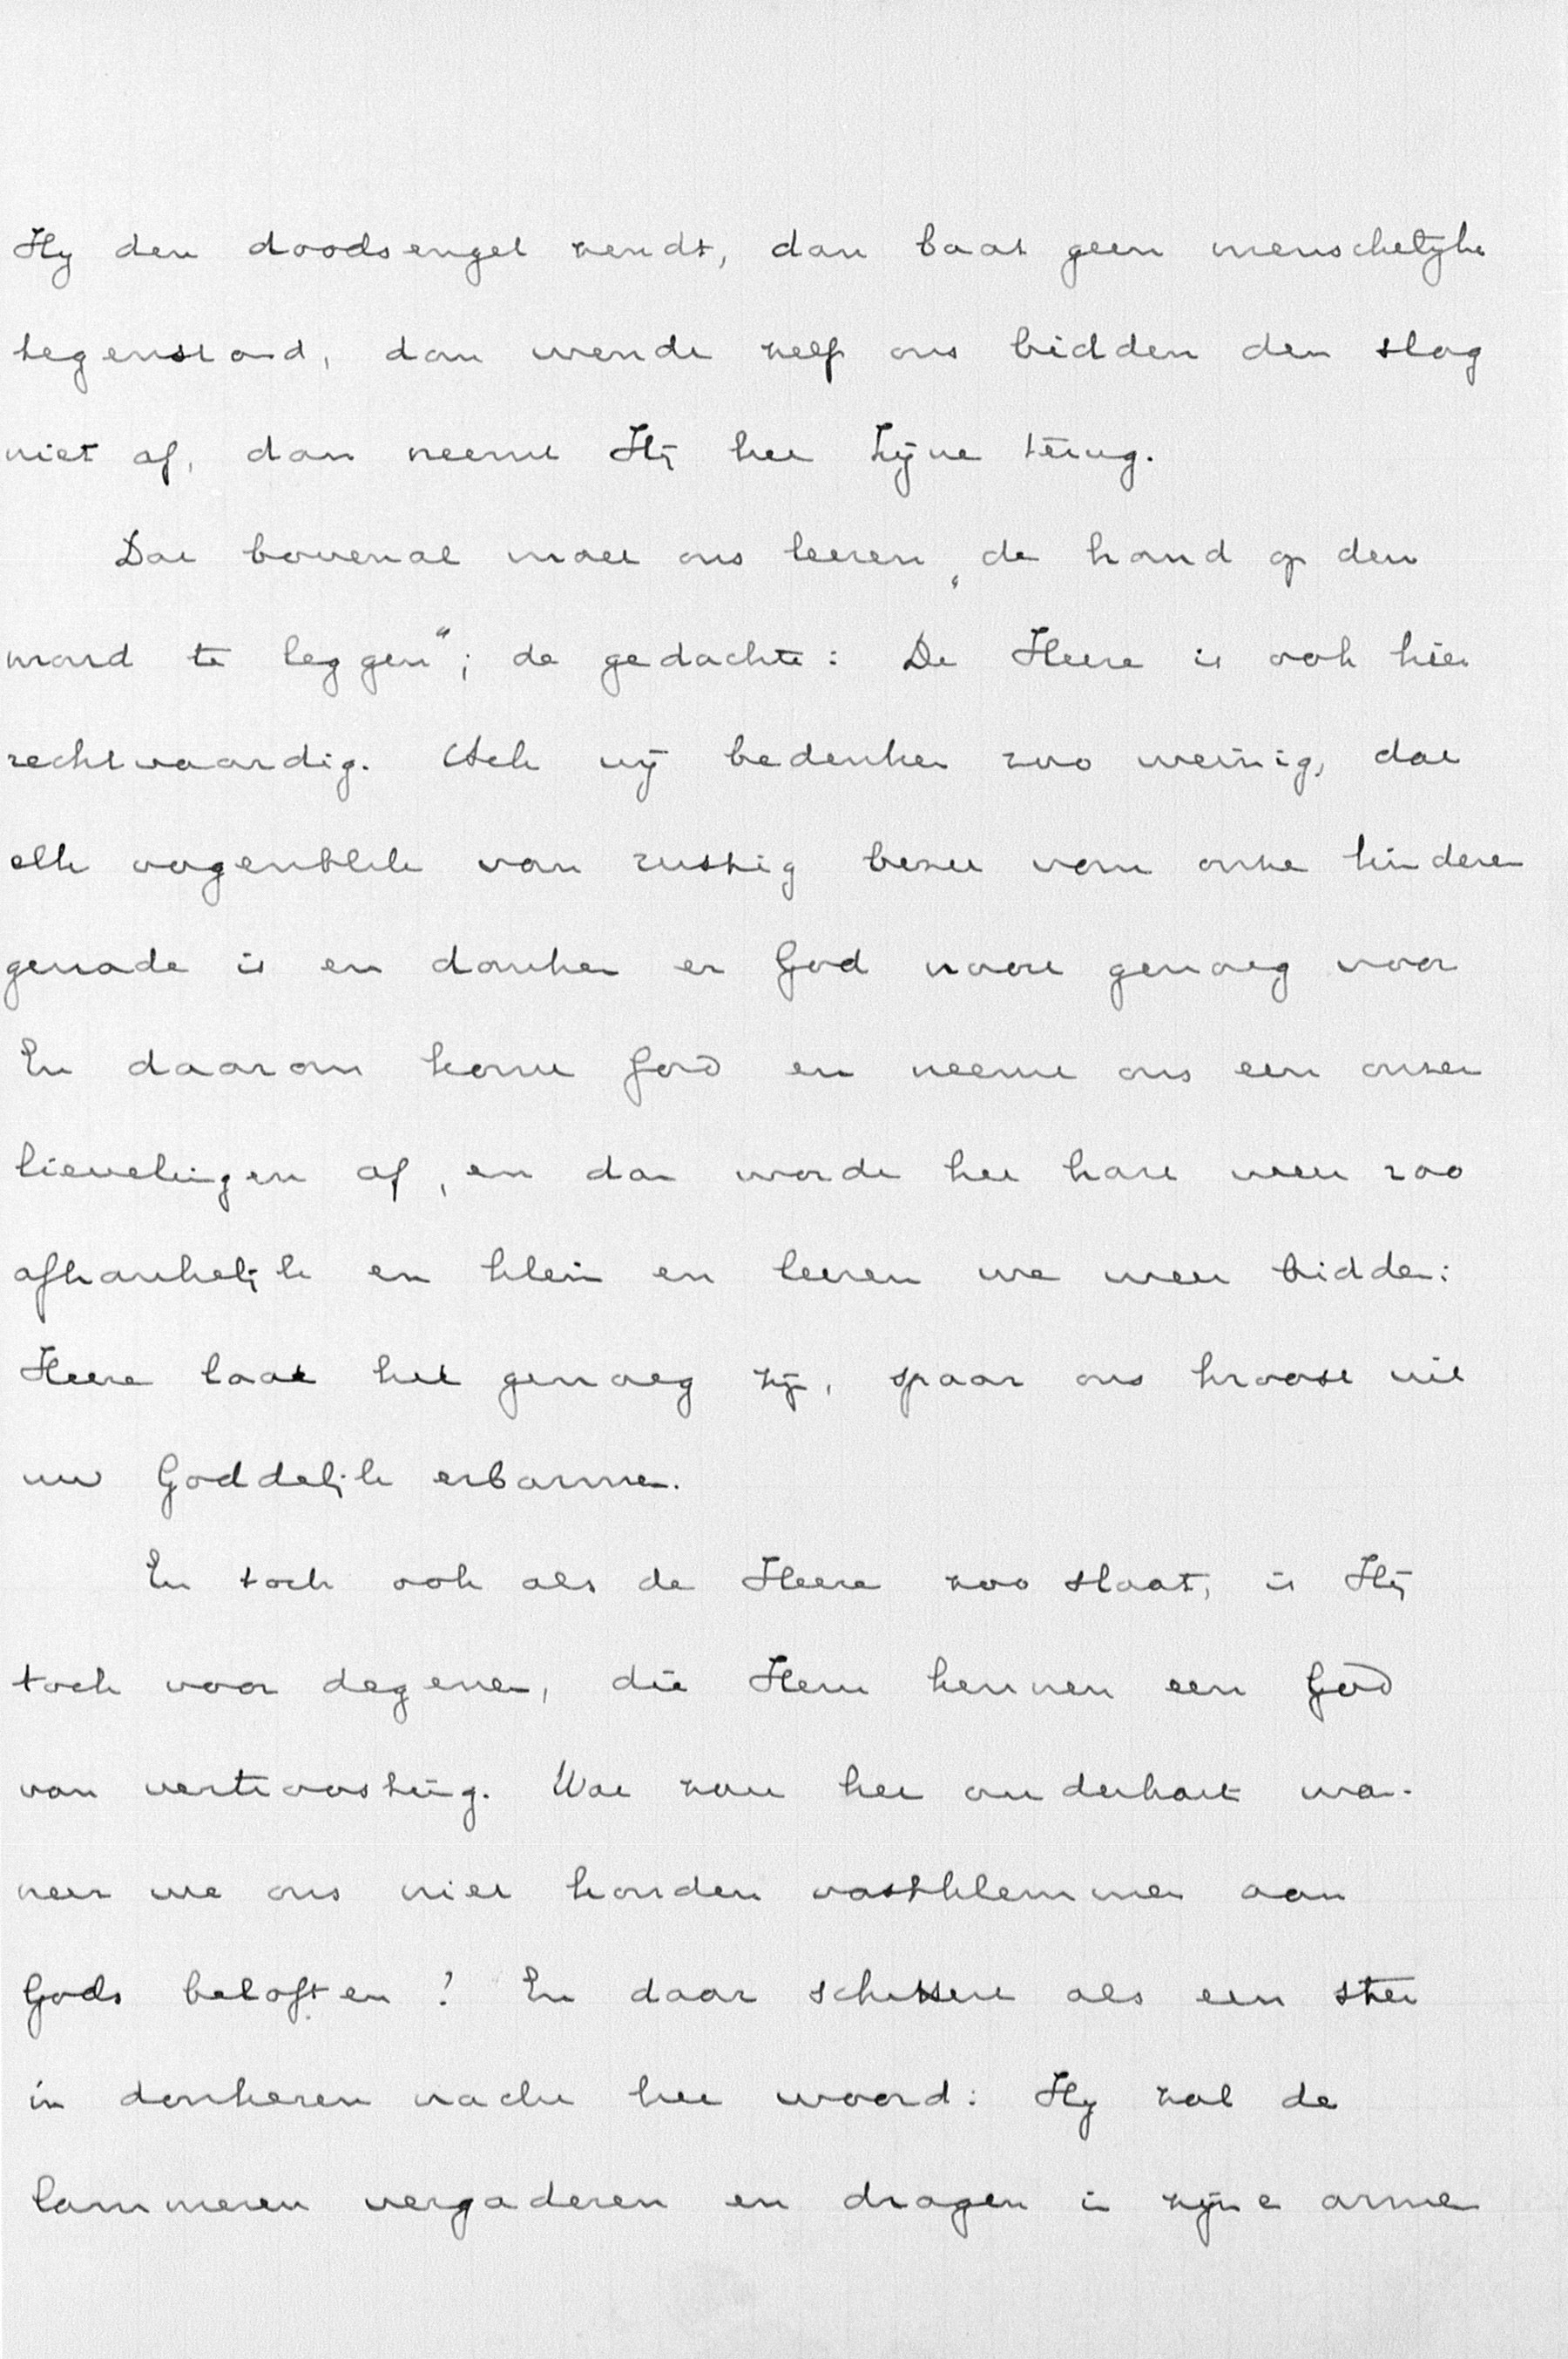 Hy den doodsengel zendt, dan baat geen menschelijke
tegenstand, dan wendt zelfs ons bidden den slag
niet af, dan neemt Hij het Zijne terug.
Dat bovenal moet ons leeren „de hand op den
mond te leggen"; de gedachte: De Heere is ook hier
rechtvaardig. Ach wij bedenken zoo weinig, dat
elk oogenblik van rustig bezit van onze kinderen
genade is en danken er God nooit genoeg voor
En daarom komt God en neemt ons een onzer
lievelingen af, en dan wordt het hart weer zoo
afhankelijk en klein en leeren we weer bidden:
Heere laat het genoeg zijn, spaar ons kroost uit
uw Goddelijk erbarmen.
En toch ook als de Heere zoo slaat, is Hij
toch voor degenen, die Hem kennen een God
van vertroosting. Wat zou het ouderhart wan-
neer we ons niet konden vastklemmen aan
Gods beloften? En daar schittert als een ster
in donkeren nacht het woord: Hy zal de
lammeren vergaderen en dragen in zijne armen